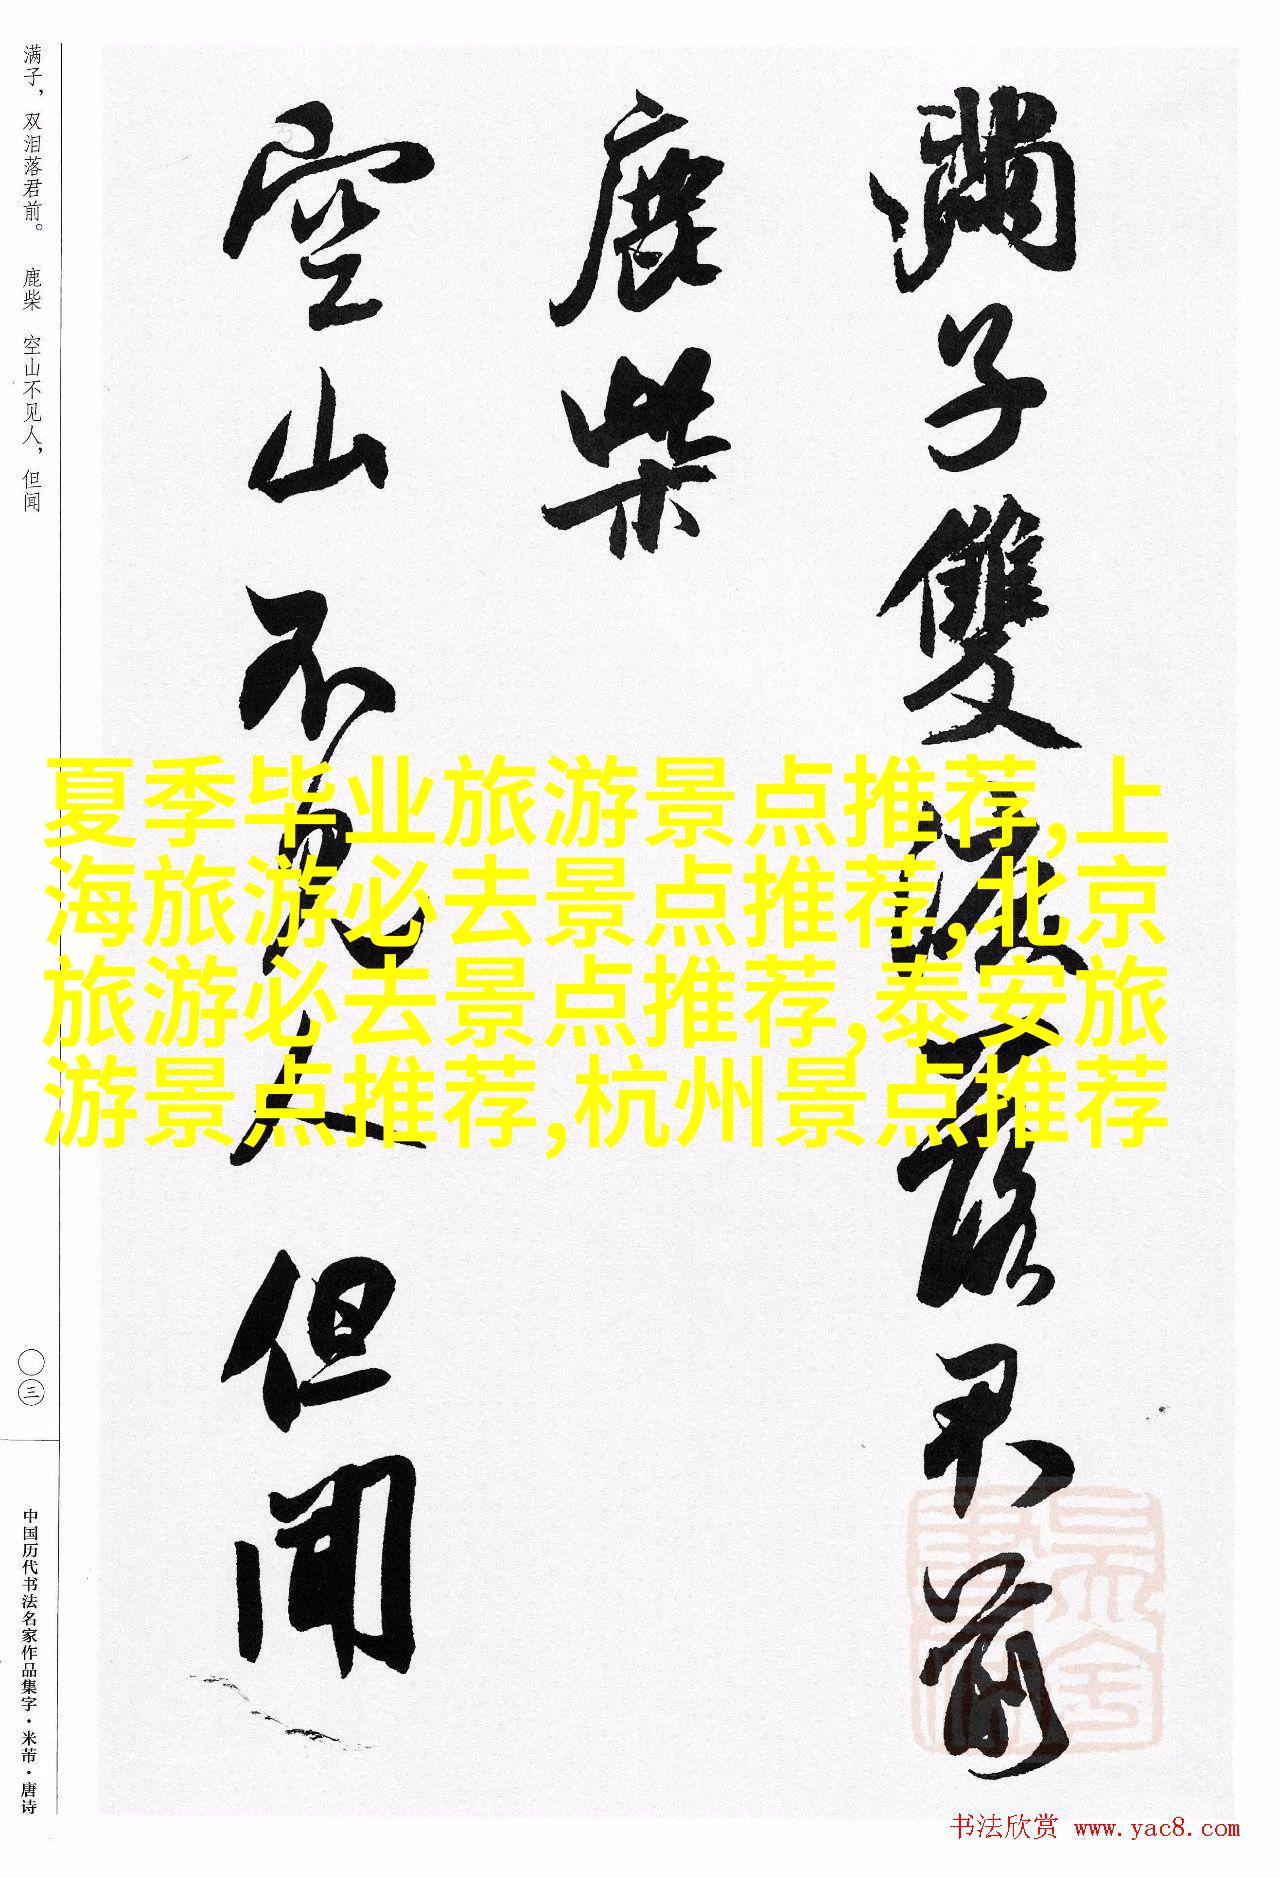 滿子雙淚落君前
鹿柴
空山不見人但聞
满子，双泪落君前。 鹿柴 空山不见人，但闻
〇三
中国历代书法名家作品集字·米芾·唐诗
夏季毕业旅游景点推荐,上
海旅游必去景点推荐,北京
旅游必去景点推荐,泰安旅
游景点推荐,杭州景点推荐
书法欣赏 www.yac8.com